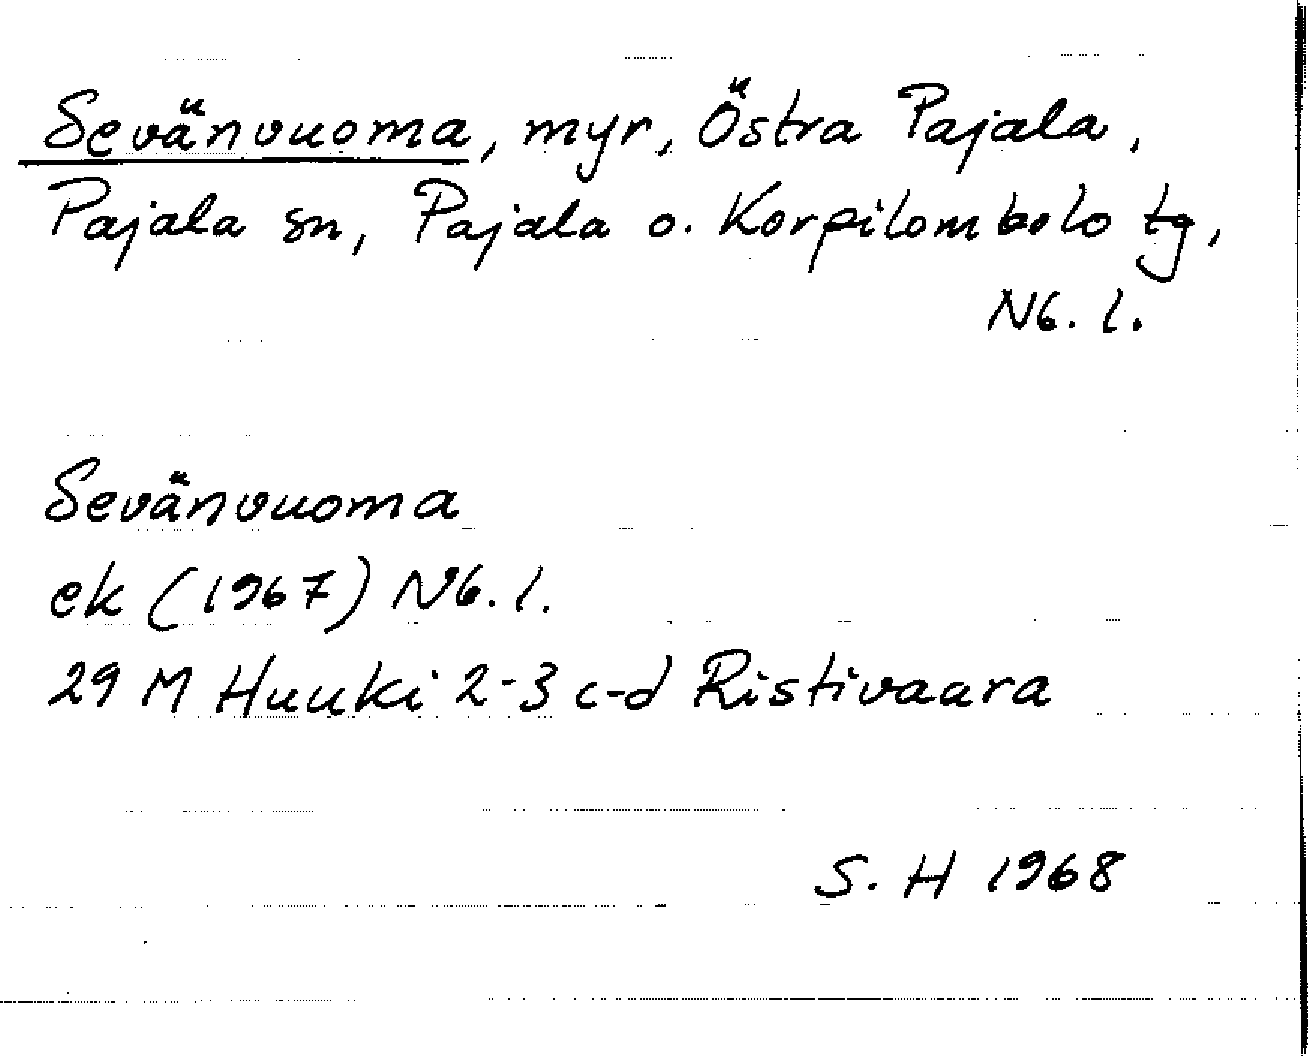 Sevänvuoma, myr, Östra Pajala,
Pajala sn, Pajala o. Korpilombolo tg,
Nb. l.
Sevänvuoma
ek (1967) Nb. l.
29 M Huuki 2-3 c-d Ristivaara
S. H 1968